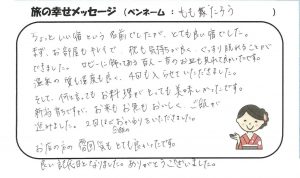 旅の幸せメッセージ（ペンネーム：もも太ろう）
ちょっといい宿という名前でしたが、とても良い宿でした。
まず、お部屋もキレイで、枕も気持ちが良く、ぐっすり眠れることが
できました。ロビーに飾ってある百人一首のお皿も見れて良かったです。
温泉の質も温度も良く、4回も入らせていただきました。
そして、何と言ってもお料理がとっても美味しかったです。
新潟育ちですが、お米もお魚もおいしく、ご飯が
進みました。2回ほどおかわりをいただきました。
お店の方の雰囲気もとても良かったです。
良い記念日となりました。ありがとうございました。